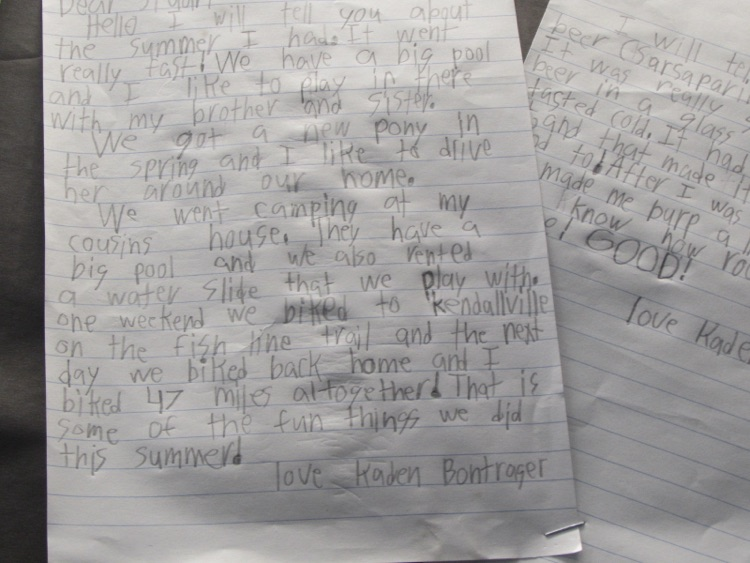 Hello I will tell you about
the summer I had. It went
really fast! We have a big pool
and I like to play in there
with my brother and sister.
We got a new pony in
the spring and I like to drive
her around our home.
We went camping at my
cousins house. They have a
big pool and we also rented
a water slide that we play with.
one weekend we biked to kendallville
on the fish line trail and the next
day we biked back home and I
biked 47 miles altogether! That is
some of the fun things we did
this summer!
love Kaden Bontrager
I will
beer (sarsapari
It was really
beer in a glass
tasted cold. It had
and that made
to! After I was
made me burp a
I know how
GOOD!
love Kade